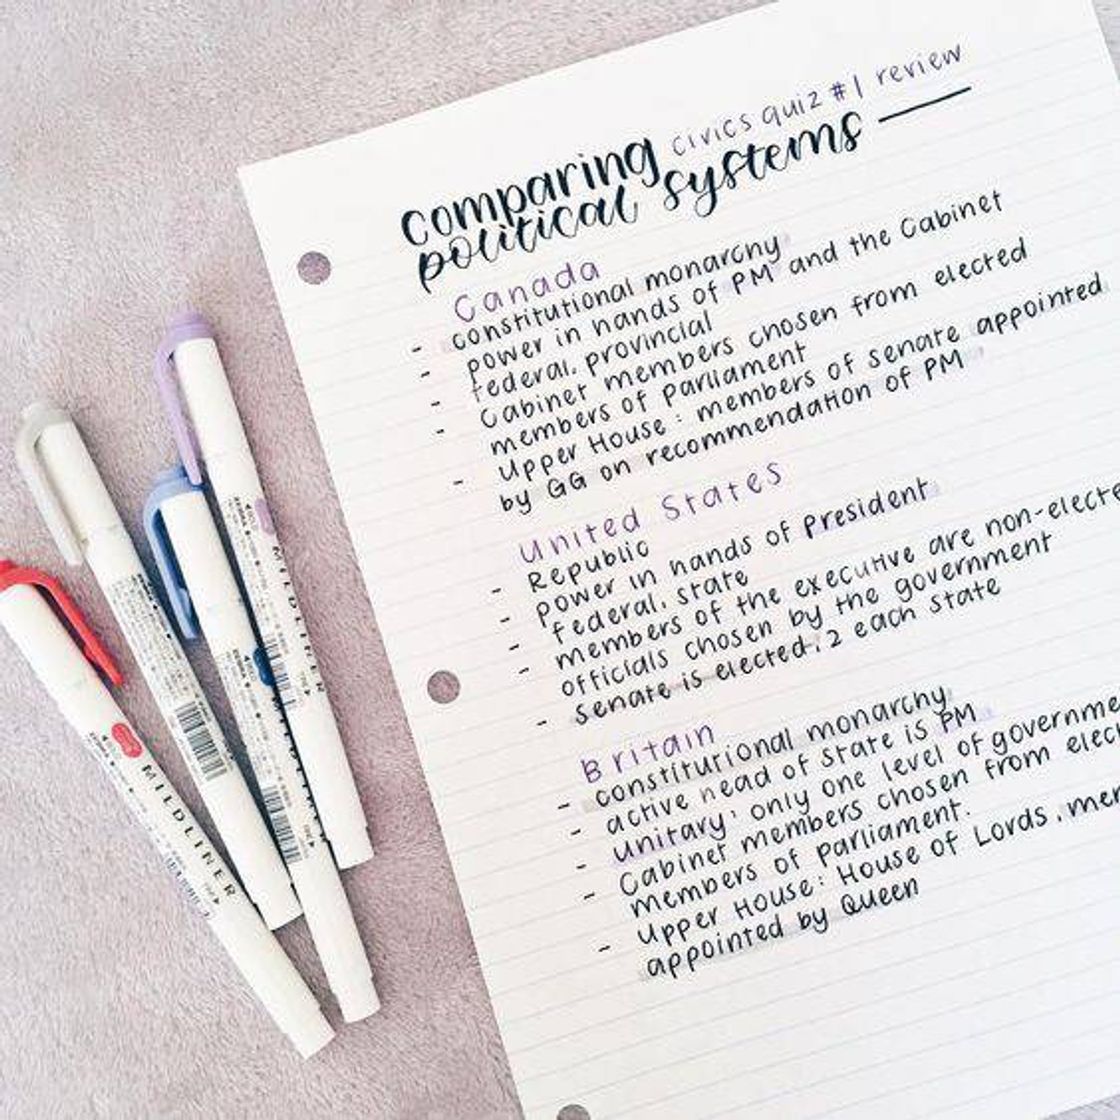 civics quiz #1 review
comparing
political systems
Canada
- constitutional monarchy
- power in hands of PM and the Cabinet
- federal, provincial
- Cabinet members chosen from elected
members of parliament
- Upper House: members of senate appointed
by GG on recommendation of PM
United States
- Republic
- power in hands of president
- federal, state
- members of the executive are non-electe
officials chosen by the government
- senate is elected, 2 each state
Britain
- constitutional monarchy
- active head of state is PM
- unitary: only one level of governme
- Cabinet members chosen from elec
members of parliament.
- Upper House: House of Lords, mem
appointed by Queen
MILDLINER
MILDLINER